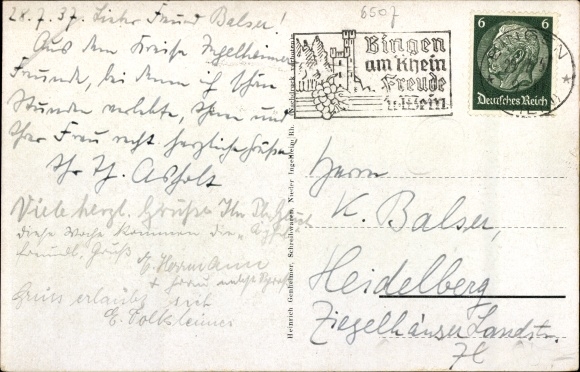 28.7.37. Lieber Freund Balser!
Aus dem Kreise Ingelheimer
Freunde, bei denen ich schöne
Stunden verlebte, Ihnen und
Ihrer Frau recht herzliche Grüße
Ihr Th. Asholt
Viele herzl. Grüße Ihr
diese Woche kommen die
freundl. Gruß
E. Hermann
+ Frau
Gruss erlaubt sich
E. Volksheimer
6507
Bingen
am Rhein
Freude
u. Wein
6 6
Deutsches Reich
BINGEN
Heinrich Genheimer, Schreibwaren, Nieder Ingelheim Rh.
Herrn
K. Balser,
Heidelberg
Ziegelhäuser Landstr.